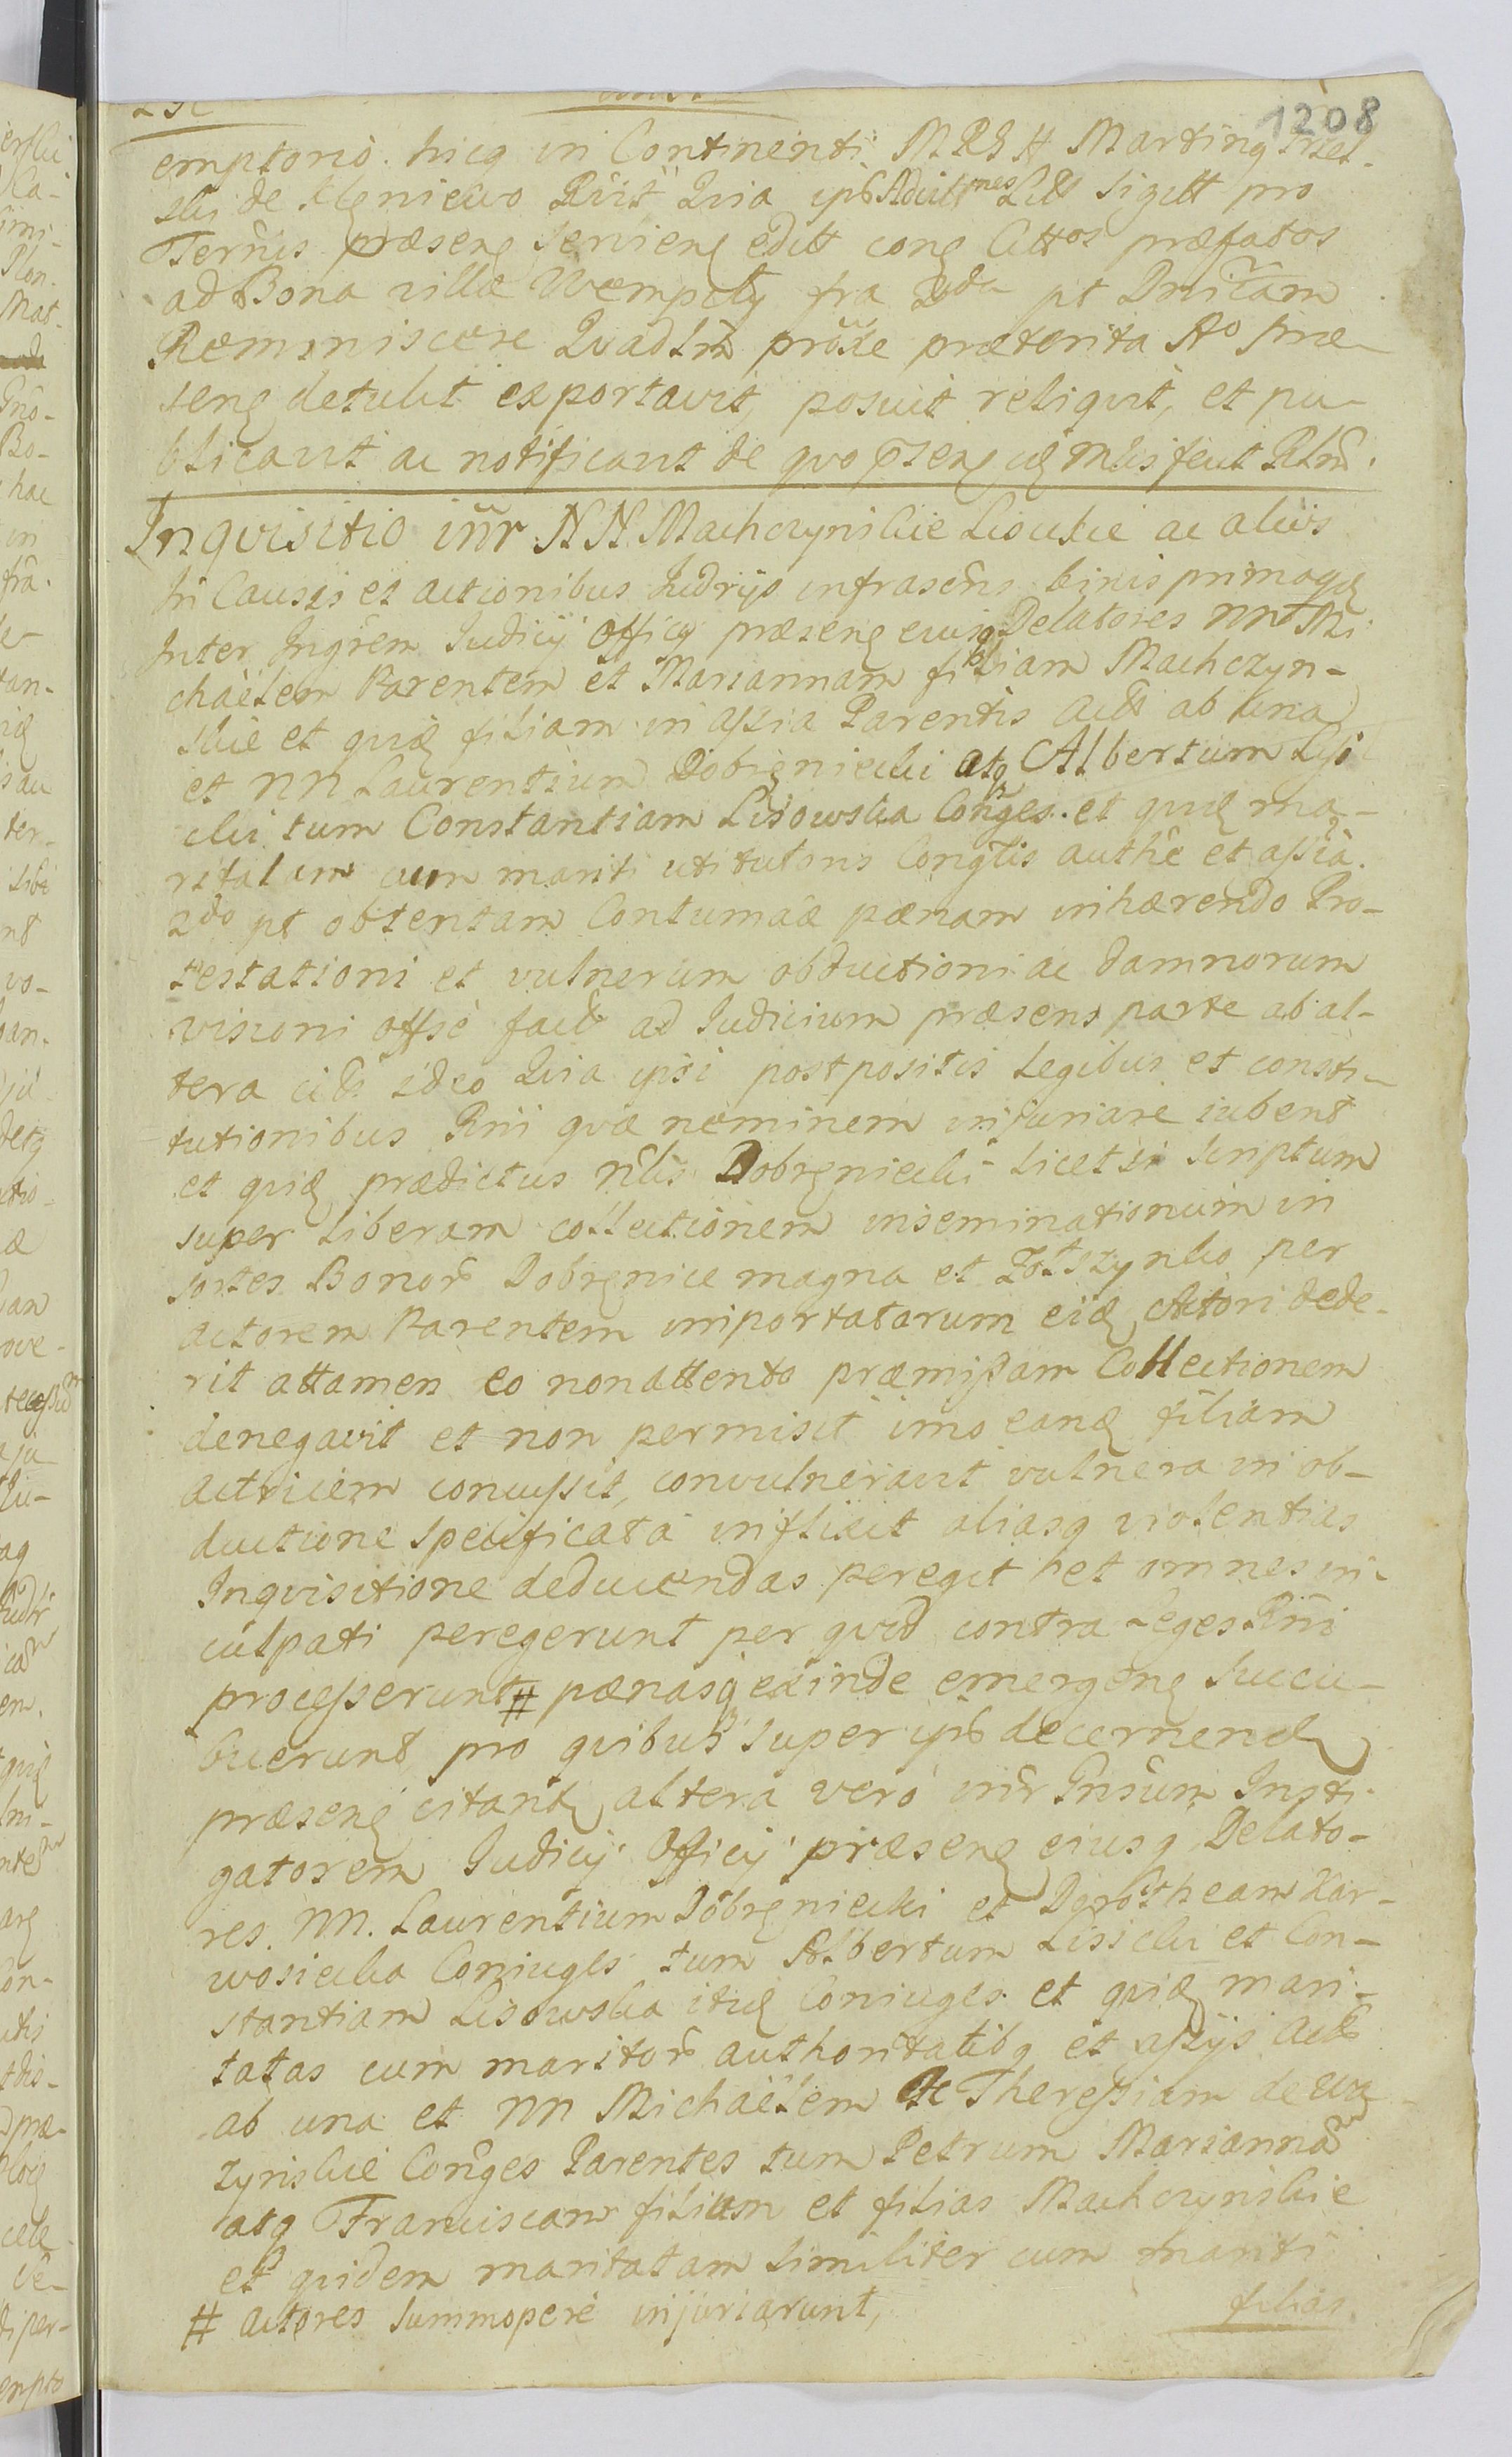 1208
emptorio. hicq in Continenti M R S H Martinq
ski de Rńt Qvia ipś Aditnes Litt sigitt pro
Terrñis præsenś servienś editt conś littos præfatos
ad Bona villæ Wempity fra 2da pt Dnicam
Reminiscere Qvadlm próxe præterita Ao præ-
senś detulit exportavit, posuit reliqvit, et pu-
blicavit ac notificavit de qvo ps̃enś mlis fecit Rlnm.
Inqvisitio inr̃ N N. Machczynskie Lisickie ac aliis
In Causis et actionibus Judrijs infrascris binis primaqś
Inter Ingr̃em Judicij Officij præsenś eiusq Delatores NN Mi
chaelem Parentem et Mariannam filiam Machczyn-
skie et qvidś filiam in assia Parentis Actś ab una
et NN Laurentium Dobrzeniecki atq Albertum Lisi
cki tum Constantiam Lisowska Conges. et qvidś ma-
ritalam cum mariti uti tutoris Conglis authẽ et assia.
2do pt obtentam Contumaæ pænam inhærendo Pro-
testationi et vulnerum obductioni ac damnorum
visioni offsè factś ad Judicium præsens parte ab al-
tera citś ideo Qvia ipsi postpositis legibus et consti-
tutionibus Rñi qvæ neminem injuriare iubent
et qvidś prædictus Nlis Dobrzeniecki licet si scriptum
super liberam collectionem inseminationum in
sortes Bonorś Dobrzenice magna et Zołszynko per
actorem Parentem importatarum eidś Actori dede-
rit attamen eo non attento præmissam Collectionem
denegavit et non permisit imo eandś filiam
actricem concussit, convulneravit vulnera in ob-
ductione specificata inflixit aliasq violentias
Inqvisitione deducendas peregit et omnes in-
culpati peregerunt per qvod contra Leges Rñi
processerunt # pænasq exinde emergenś succu-
buerunt, pro qvibus super ipś decernendś
præsenś citantś, altera verò inr̃ Gnsum Insti-
gatorem Judicij Officij præsenś eiusq Delato-
res. NN. Laurentium Dobrzeniecki et Dorotheam Kar-
wosiecka Coniugls tum Albertum Lisicki et Con-
stantiam Lisowska itidś Coniuges et qvidś mari-
tatas cum maritorś authoritatibq et assijs Actś
ab una et NN Michaelem ac Theressiam de
zynskie Conges Parentes tum Petrum Marianną
atq Franciscam filium et filias Machczynskie
et qvidem maritatam similiter cum mariti
# actores summopere injuriarunt,
filias